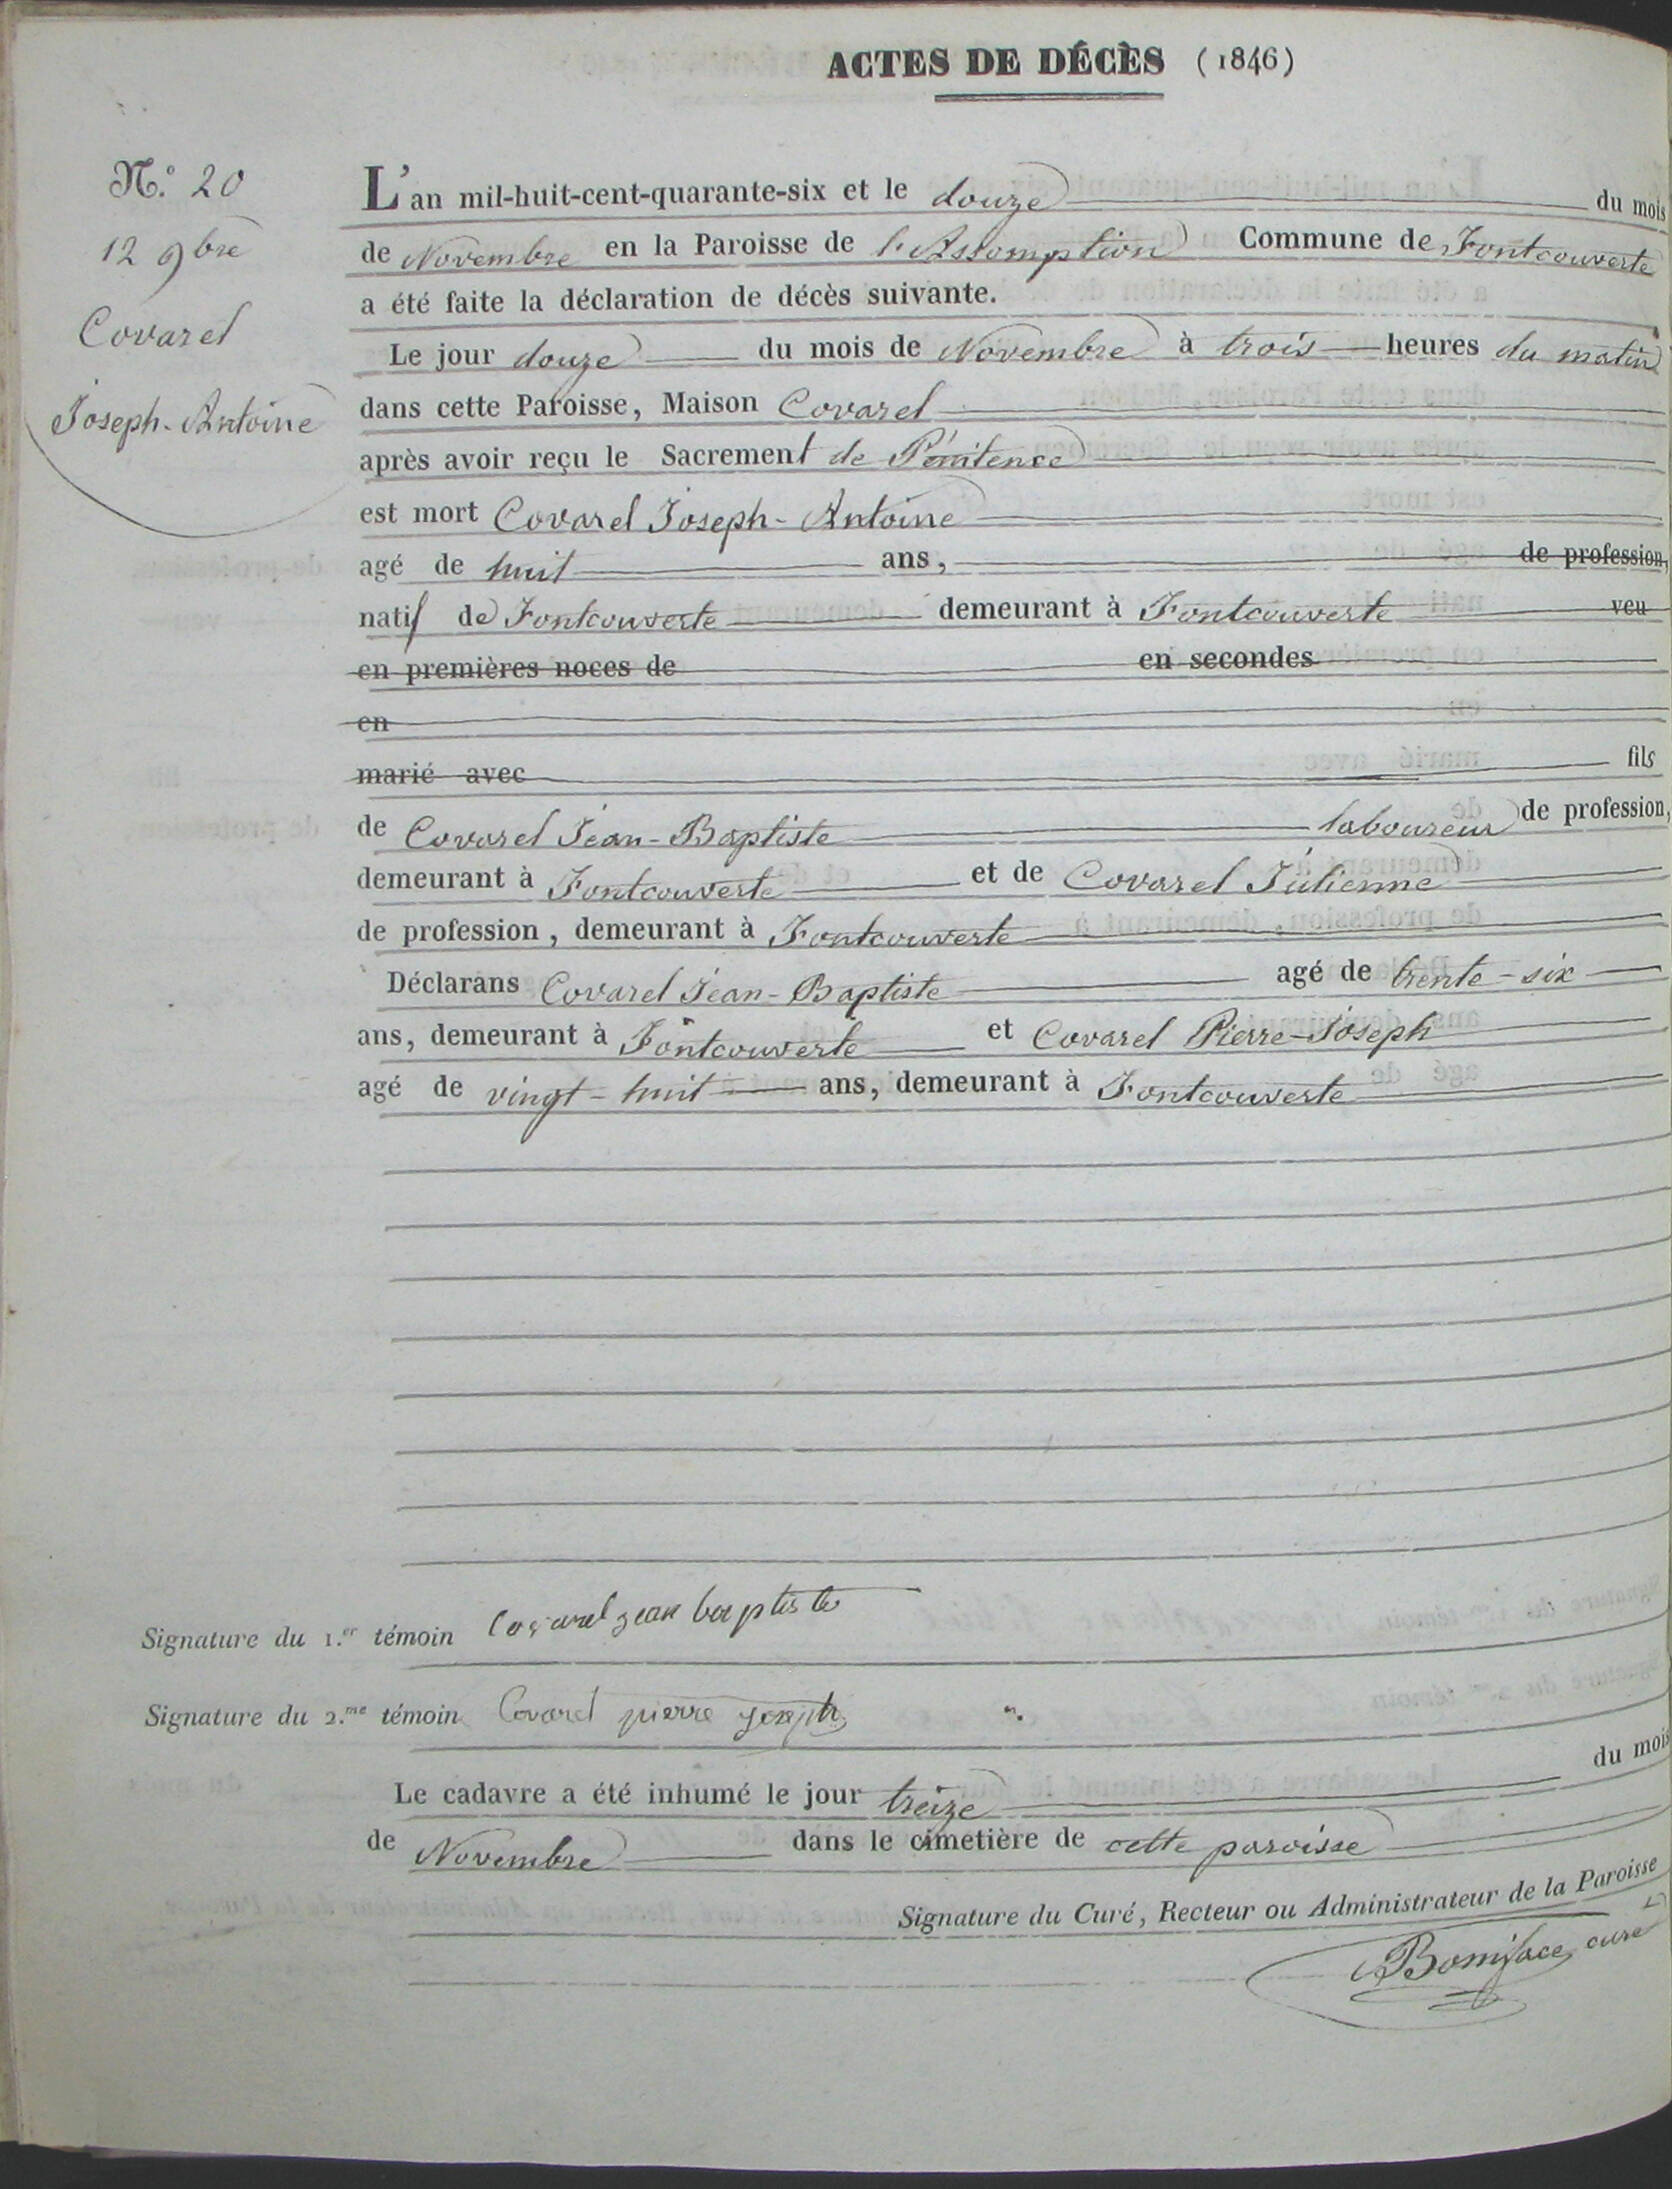 ACTES DE DÉCÈS (1846)
N.º 20
12 9bre
Covarel
Joseph-Antoine
L'an mil-huit-cent-quarante-six et le douze du mois
de Novembre en la Paroisse de l'Assomption Commune de Fontcouverte
a été faite la déclaration de décès suivante.
Le jour douze du mois de Novembre à trois heures du matin
dans cette Paroisse, Maison Covarel
après avoir reçu le Sacrement de Pénitence
est mort Covarel Joseph-Antoine
agé de huit ans, de profession,
natif de Fontcouverte demeurant à Fontcouverte veu
en premières noces de en secondes
en
marié avec fils
de Covarel Jean-Baptiste laboureur de profession,
demeurant à Fontcouverte et de Covarel Julienne
de profession, demeurant à Fontcouverte
Déclarans Covarel Jean-Baptiste agé de trente-six
ans, demeurant à Fontcouverte et Covarel Pierre-Joseph
agé de vingt-huit ans, demeurant à Fontcouverte
Signature du 1.er témoin Covarel jean baptiste
Signature du 2.me témoin Covarel pierre joseph
Le cadavre a été inhumé le jour treize du mois
de Novembre dans le cimetière de cette paroisse
Signature du Curé, Recteur ou Administrateur de la Paroisse
Boniface curé